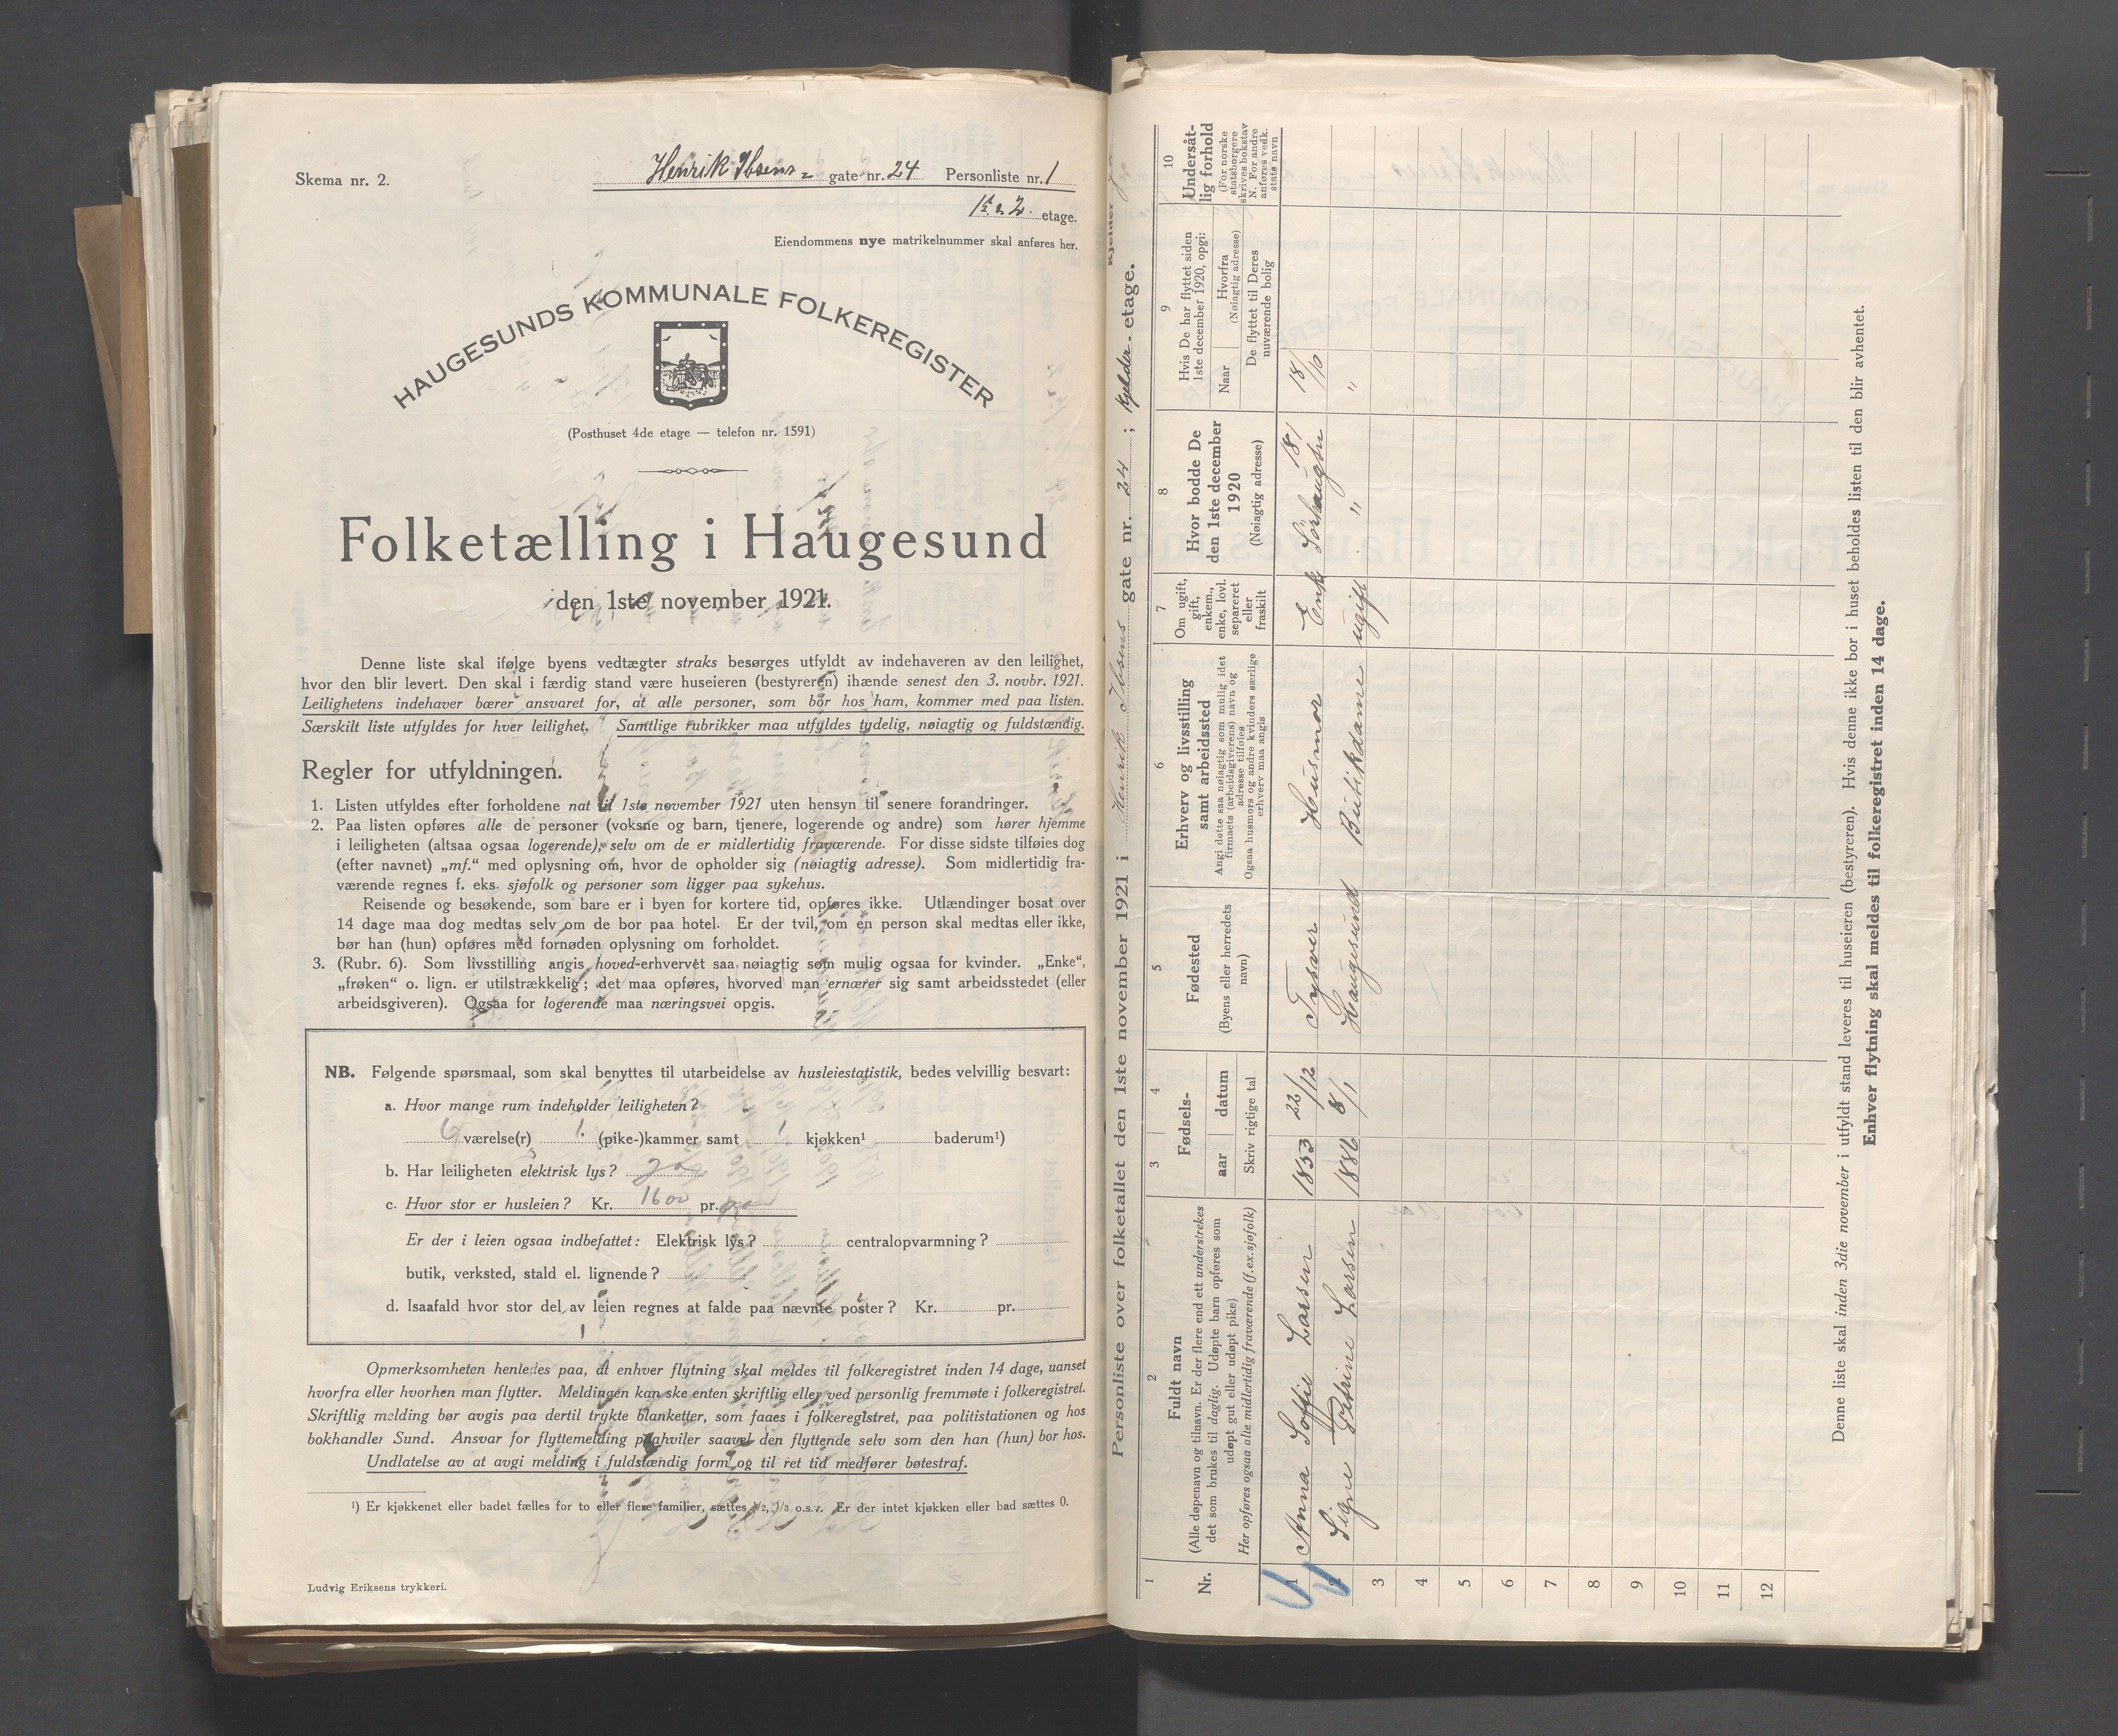 Skema nr. 2.
Henrik Ibsens gate nr. 24 Personliste nr. 1
1ste & 2. etage.
Eiendommens nye matrikelnummer skal anføres her.
HAUGESUNDS KOMMUNALE FOLKEREGISTER
(Posthuset 4de etage — telefon nr. 1591)
Folketælling i Haugesund
den 1ste november 1921.
Denne liste skal ifølge byens vedtægter straks besørges utfyldt av indehaveren av den leilighet,
hvor den blir levert. Den skal i færdig stand være huseieren (bestyreren) ihænde senest den 3. novbr. 1921.
Leilighetens indehaver bærer ansvaret for, at alle personer, som bor hos ham, kommer med paa listen.
Særskilt liste utfyldes for hver leilighet. Samtlige rubrikker maa utfyldes tydelig, nøiagtig og fuldstændig.
Regler for utfyldningen.
1. Listen utfyldes efter forholdene nat til 1ste november 1921 uten hensyn til senere forandringer.
2. Paa listen opføres alle de personer (voksne og barn, tjenere, logerende og andre) som hører hjemme
i leiligheten (altsaa ogsaa logerende), selv om de er midlertidig fraværende. For disse sidste tilføies dog
(efter navnet) „mf.“ med oplysning om, hvor de opholder sig (nøiagtig adresse). Som midlertidig fra-
værende regnes f. eks. sjøfolk og personer som ligger paa sykehus.
Reisende og besøkende, som bare er i byen for kortere tid, opføres ikke. Utlændinger bosat over
14 dage maa dog medtas selv om de bor paa hotel. Er der tvil, om en person skal medtas eller ikke,
bør han (hun) opføres med fornøden oplysning om forholdet.
3. (Rubr. 6). Som livsstilling angis hoved-erhvervet saa nøiagtig som mulig ogsaa for kvinder. „Enke“,
„frøken“ o. lign. er utilstrækkelig; det maa opføres, hvorved man ernærer sig samt arbeidsstedet (eller
arbeidsgiveren). Ogsaa for logerende maa næringsvei opgis.
NB. Følgende spørsmaal, som skal benyttes til utarbeidelse av husleiestatistik, bedes velvillig besvart:
a. Hvor mange rum indeholder leiligheten?
6 værelse(r) 1 (pike-)kammer samt 1 kjøkken¹ baderum¹)
b. Har leiligheten elektrisk lys? Ja
c. Hvor stor er husleien? Kr. 1600 pr.
Er der i leien ogsaa indbefattet: Elektrisk lys? centralopvarmning?
butik, verksted, stald el. lignende?
d. Isaafald hvor stor del av leien regnes at falde paa nævnte poster? Kr. pr.
Opmerksomheten henledes paa, at enhver flytning skal meldes til folkeregistret inden 14 dage, uanset
hvorfra eller hvorhen man flytter. Meldingen kan ske enten skriftlig eller ved personlig fremmøte i folkeregistret.
Skriftlig melding bør avgis paa dertil trykte blanketter, som faaes i folkeregistret, paa politistationen og hos
bokhandler Sund. Ansvar for flyttemelding paahviler saavel den flyttende selv som den han (hun) bor hos.
Undlatelse av at avgi melding i fuldstændig form og til ret tid medfører bøtestraf.
¹) Er kjøkkenet eller badet fælles for to eller flere familier, sættes 1/2, 1/3 o.s.v. Er der intet kjøkken eller bad sættes 0.
Ludvig Eriksens trykkeri.
Personliste over folketallet den 1ste november 1921 i Henrik Ibsens gate nr. 24; Kjelder-etage.
1 2 3 4 5 6 7 8 9 10
Nr.
Fuldt navn
(Alle døpenavn og tilnavn. Er der flere end ett understrekes
det som brukes til daglig. Udøpte barn opføres som
udøpt gut eller udøpt pike)
Her opføres ogsaa alle midlertidig fraværende (f.ex.sjøfolk)
Fødsels-
aar datum
Skriv rigtige tal
Fødested
(Byens eller herredets
navn)
Erhverv og livsstilling
samt arbeidssted
Angi dette saa nøiagtig som mulig idet
firmaets (arbeidsgiverens) navn og
adresse tilføies
Ogsaa husmors og andre kvinders særlige
erhverv maa angis
Om ugift,
gift,
enkem.,
enke, lovl.
separeret
eller
fraskilt
Hvor bodde De
den 1ste december
1920
(Nøiagtig adresse)
Hvis De har flyttet siden
1ste december 1920, opgi:
Naar
Hvorfra
(Nøiagtig adresse)
De flyttet til Deres
nuværende bolig
Undersåt-
lig forhold
(For norske
statsborgere
skrives bokstav
N. For andre
anføres vedk.
stats navn
1 Anna Soffie Larsen 1853 22/12 Tysvær Husmor Enke Sörhaugtn 181 18/10
2 Signe Petrine Larsen 1886 8/1 Haugesund Butikdame ugift " "
3
4
5
6
7
8
9
10
11
12
Denne liste skal inden 3die november i utfyldt stand leveres til huseieren (bestyreren). Hvis denne ikke bor i huset beholdes listen til den blir avhentet.
Enhver flytning skal meldes til folkeregistret inden 14 dage.